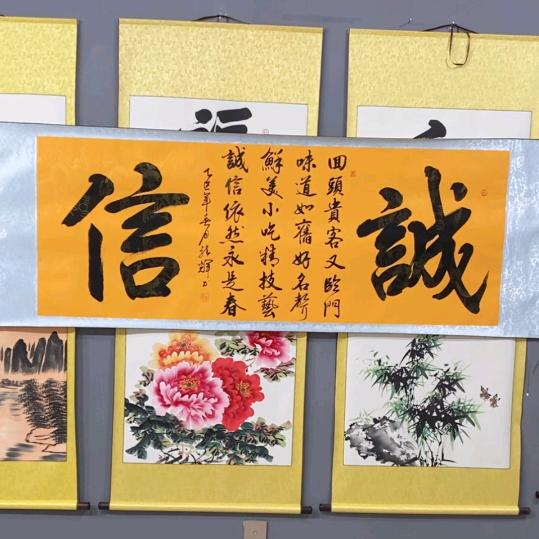 誠
回頭貴客又臨門
味道如舊好名聲
鮮美小吃精技藝
誠信依然永是春
信